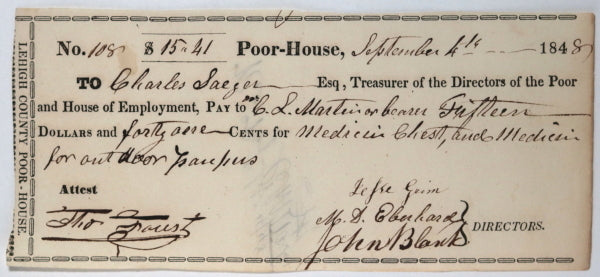 LEHIGH COUNTY POOR-HOUSE.
No. 108 $ 15.41 Poor-House, September 4th 1848
TO Charles Saeger Esq, Treasurer of the Directors of the Poor
and House of Employment, PAY to C. L. Martin or bearer Fifteen
DOLLARS and forty one CENTS for Medicin Chest, and Medicin
for out door paupers
Attest
Jesse Grim
M. D. Eberhard
Tho Faust
John Blank
DIRECTORS.